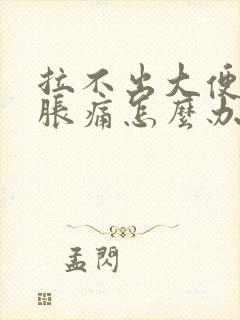 拉不出大便
脹痛怎麼办
孟閃